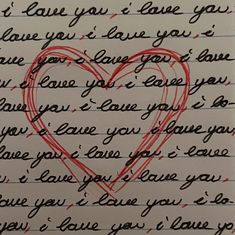 i love you, i love you,
love you, i love you, i
love you, i love you, i
you, i love you, i love you,
love you, i love you, i lo-
i love you, i love you,
love you, i love you, i love
i love you, i love you,
love you, i love you, i lo-
you, i love you, i love yo